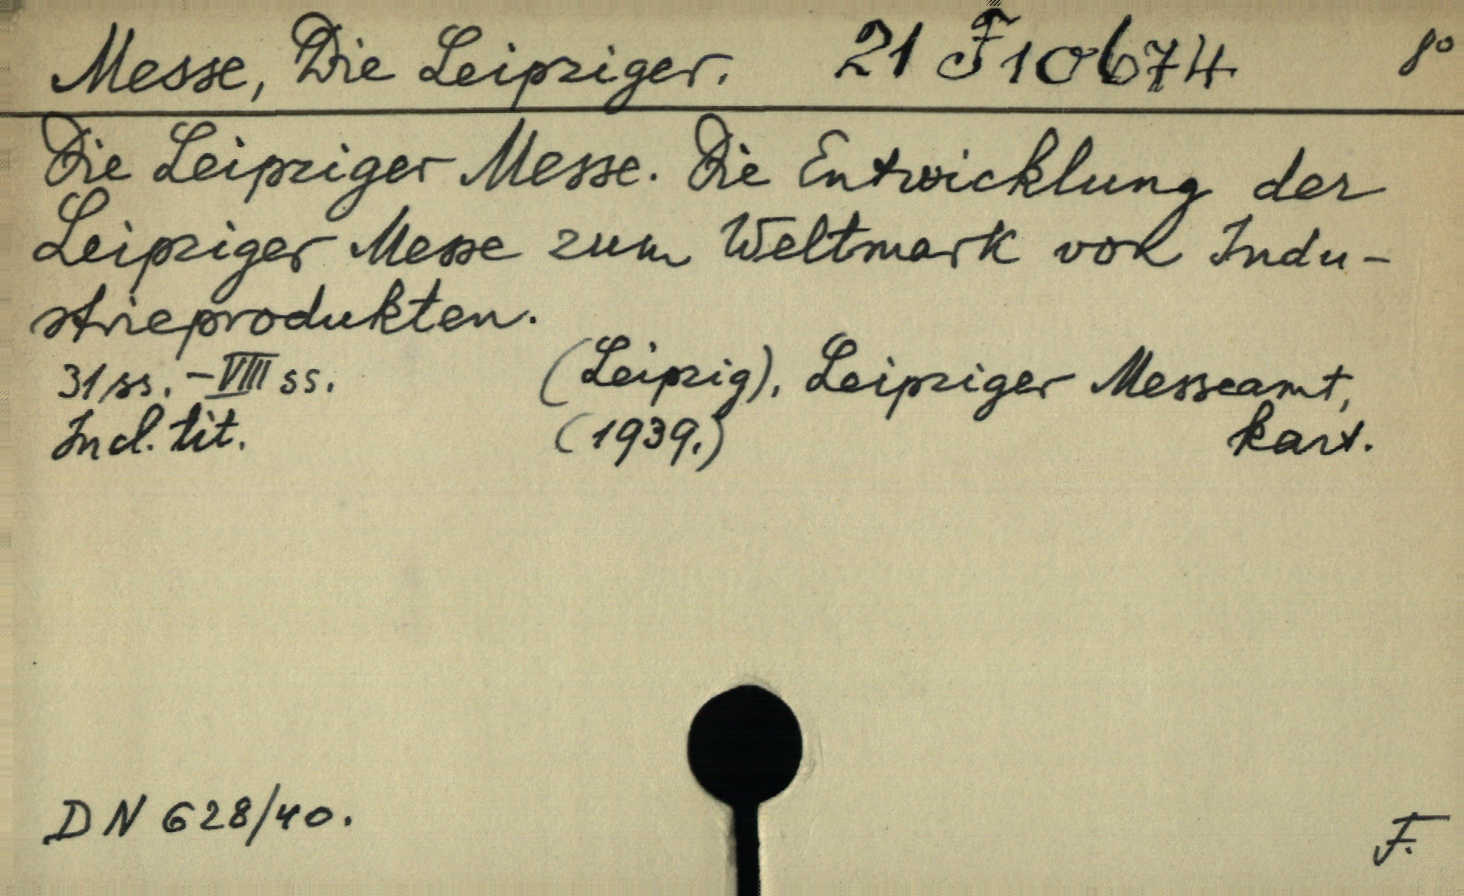 Messe, Die Leipziger. 21 F 10674 8°
Die Leipziger Messe. Die Entwicklung der
Leipziger Messe zum Weltmark von Indu-
strieprodukten.
31 ss. - VIII ss. (Leipzig), Leipziger Messeamt,
Incl. tit. (1939.) kart.
DN 628/40. F.